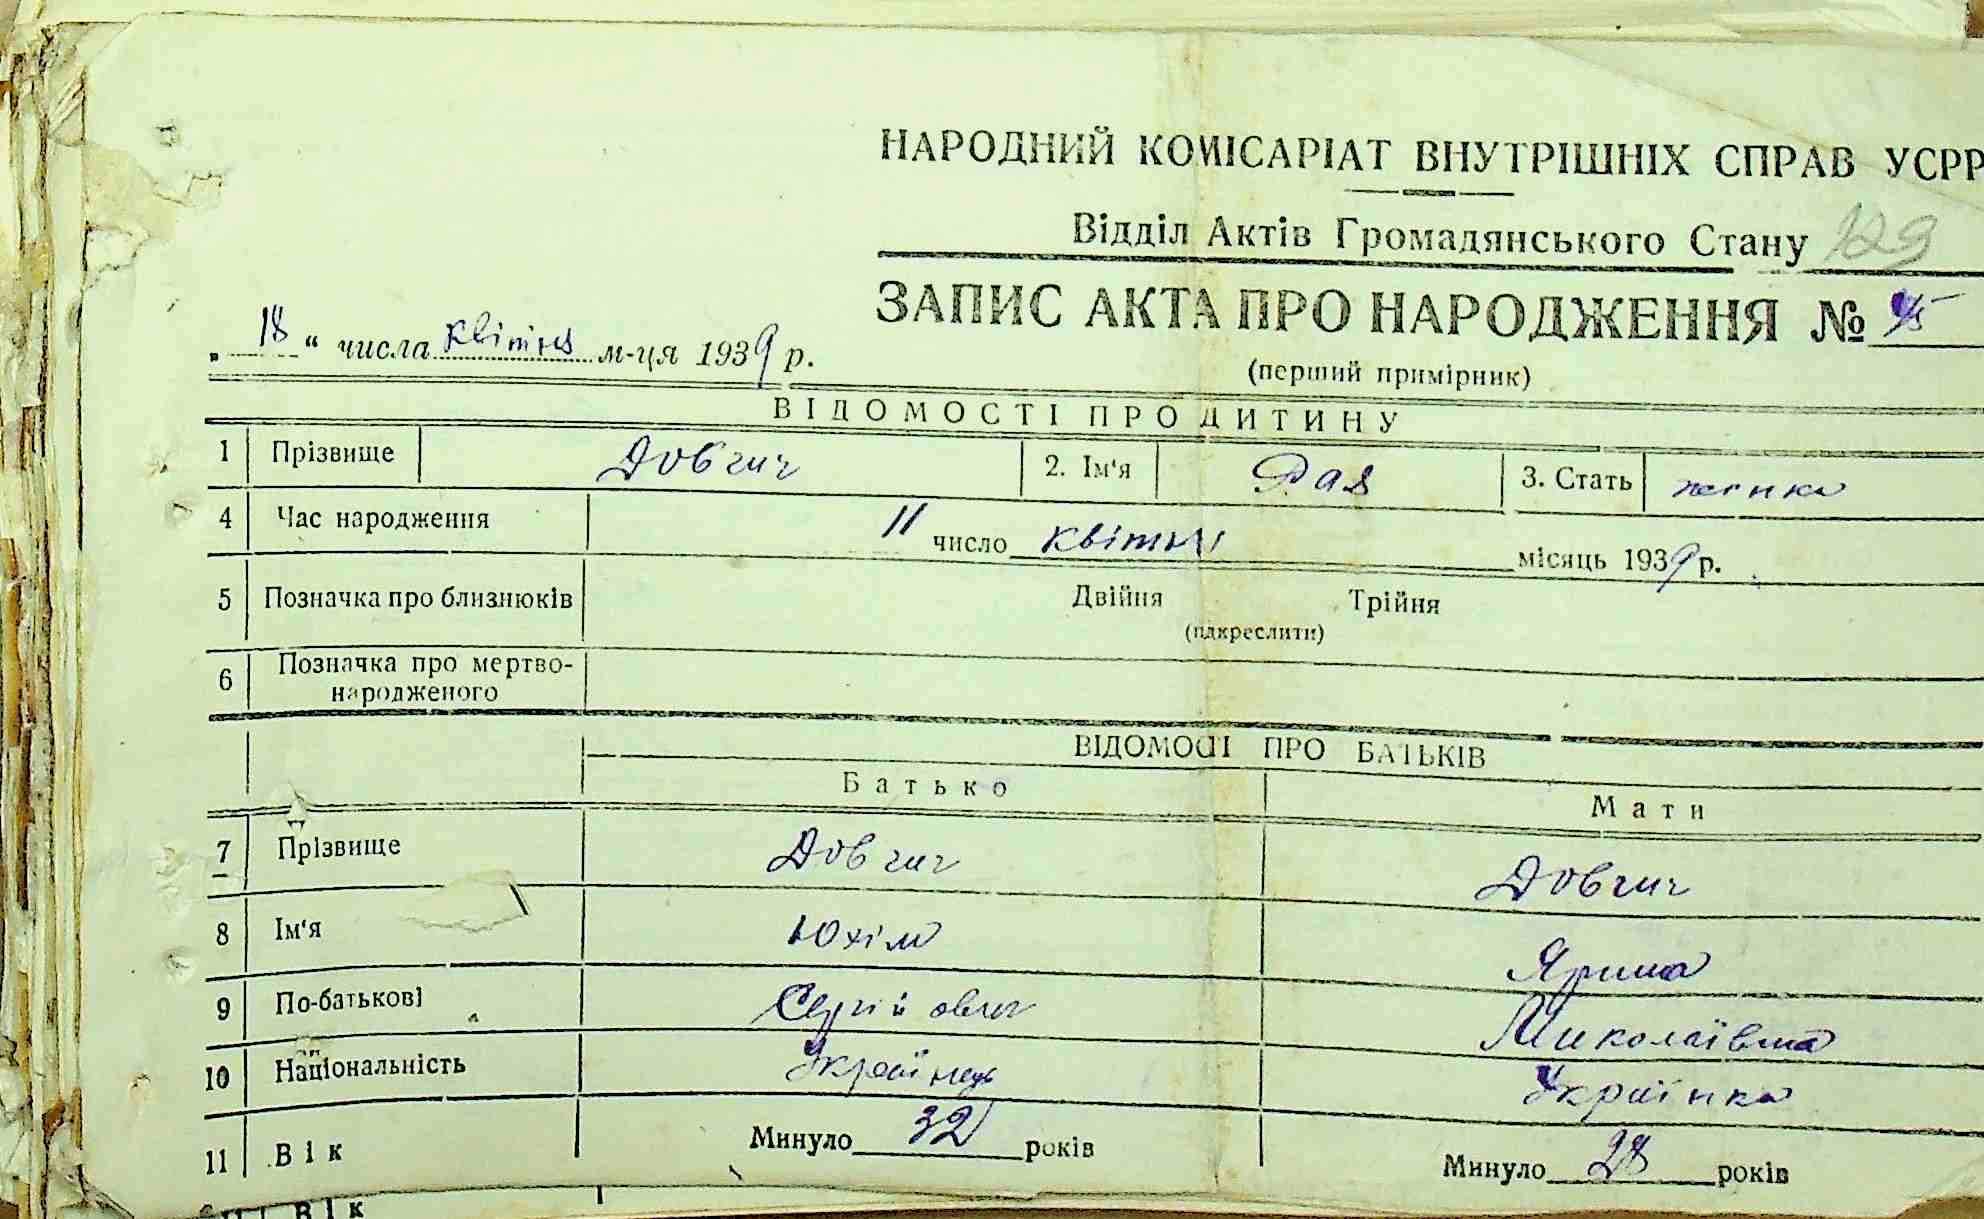 НАРОДНИЙ КОМІСАРІАТ ВНУТРІШНІХ СПРАВ УСРР
Відділ Актів Громадянського Стану 129
ЗАПИС АКТА ПРО НАРОДЖЕННЯ № 45
„ 18 “ числа квітня м-ця 1939 р.
(перший примірник)
ВІДОМОСТІ ПРО ДИТИНУ
1 Прізвище Довгич 2. Ім‘я Рая 3. Стать жінка
4 Час народження 11 число квітня місяць 1939 р.
5 Позначка про близнюків Двійня Трійня
(підкреслити)
6 Позначка про мертво-
народженого
ВІДОМОСТІ ПРО БАТЬКІВ
Батько Мати
7 Прізвище Довгич Довгич
8 Ім‘я Юхім Ярина
9 По-батькові Сергійович Миколаївна
10 Національність Українець Українка
11 Вік Минуло 32 років Минуло 28 років
11 Вік